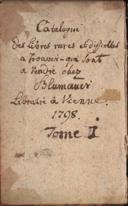 Catalogue
des Livres rares et difficiles
a trouver qui sont
a vendre chez
Blumauer
Libraire à Vienne.
1798.
Tome I